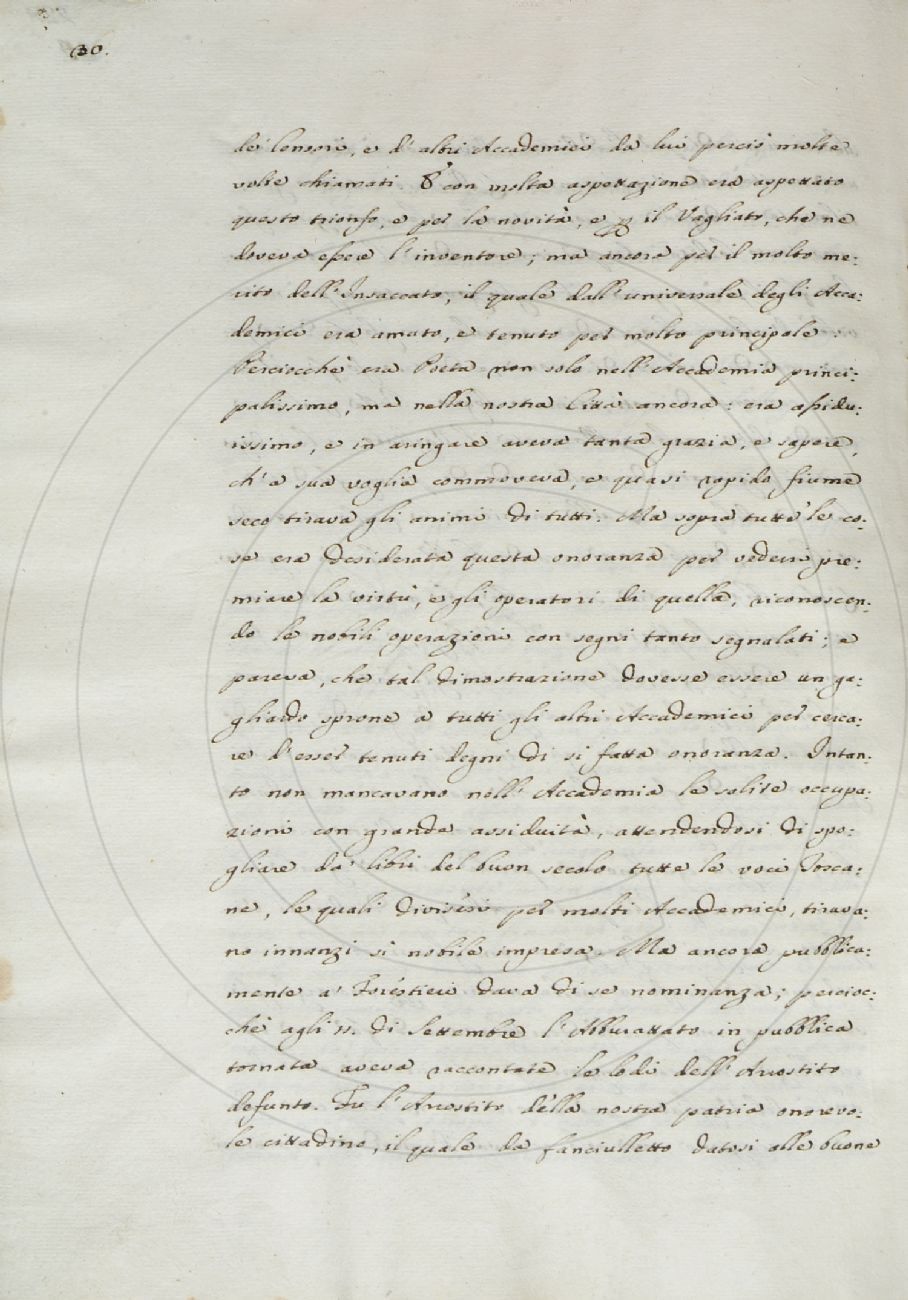 30.
dei Censori, e d'altri Accademici da lui perciò molte
volte chiamati. E con molta aspettazione era aspettato
questo trionfo, e per la novità, e p il Vagliato, che ne
doveva essere l'inventore; ma ancora per il molto me:
rito dell'Insaccato, il quale dall'universale degli Acca:
demici era amato, e tenuto per molto principale:
Perciocchè era Poeta non solo nell'Accademia princi:
palissimo, ma nella nostra Città ancora: era assidu:
issimo, e in aringare aveva tanta grazia, e sapere,
ch'a sua voglia commoveva, e quasi rapido fiume
seco tirava gli animi di tutti. Ma sopra tutte le co:
se era desiderata questa onoranza per vedersi pre:
miare la virtù, e gli operatori di quella, riconoscen:
do le nobili operazioni con segni tanto segnalati; e
pareva, che tal dimostrazione dovesse essere un ga:
gliardo sprone a tutti gli altri Accademici per cerca:
re d'esser tenuti degni di si fatta onoranza. Intan:
to non mancavano nell'Accademia le solite occupa:
zioni con grande assiduità, attendendosi di spo:
gliare da' libri del buon secolo tutte le voci Tosca:
ne, le quali divisesi per molti Accademici, tirava:
no innanzi sì nobile impresa. Ma ancora pubblica:
mente a' Forestieri dava di se nominanza; percioc:
chè agli 11. di Settembre l'Abburattato in pubblica
tornata aveva raccontate le lodi dell'Arrostito
defunto. Fu l'Arrostito della nostra patria onorevo:
le cittadino, il quale da fanciulletto datosi alle buone